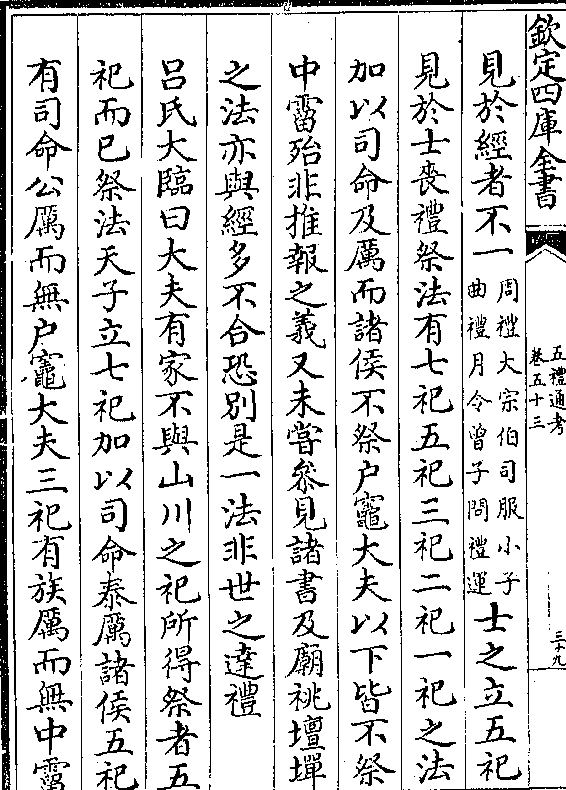 欽定四庫全書
五禮通考
卷五十三
三十九
見於經者不一周禮大宗伯司服小子
曲禮月令曾子問禮運士之立五祀
見於士喪禮祭法有七祀五祀三祀二祀一祀之法
加以司命及厲而諸侯不祭户竈大夫以下皆不祭
中霤殆非推報之義又未嘗叅見諸書及廟祧壇墠
之法亦與經多不合恐别是一法非世之達禮
吕氏大臨曰大夫有家不與山川之祀所得祭者五
祀而已祭法天子立七祀加以司命泰厲諸侯五祀
有司命公厲而無户竈大夫三祀有族厲而無中霤